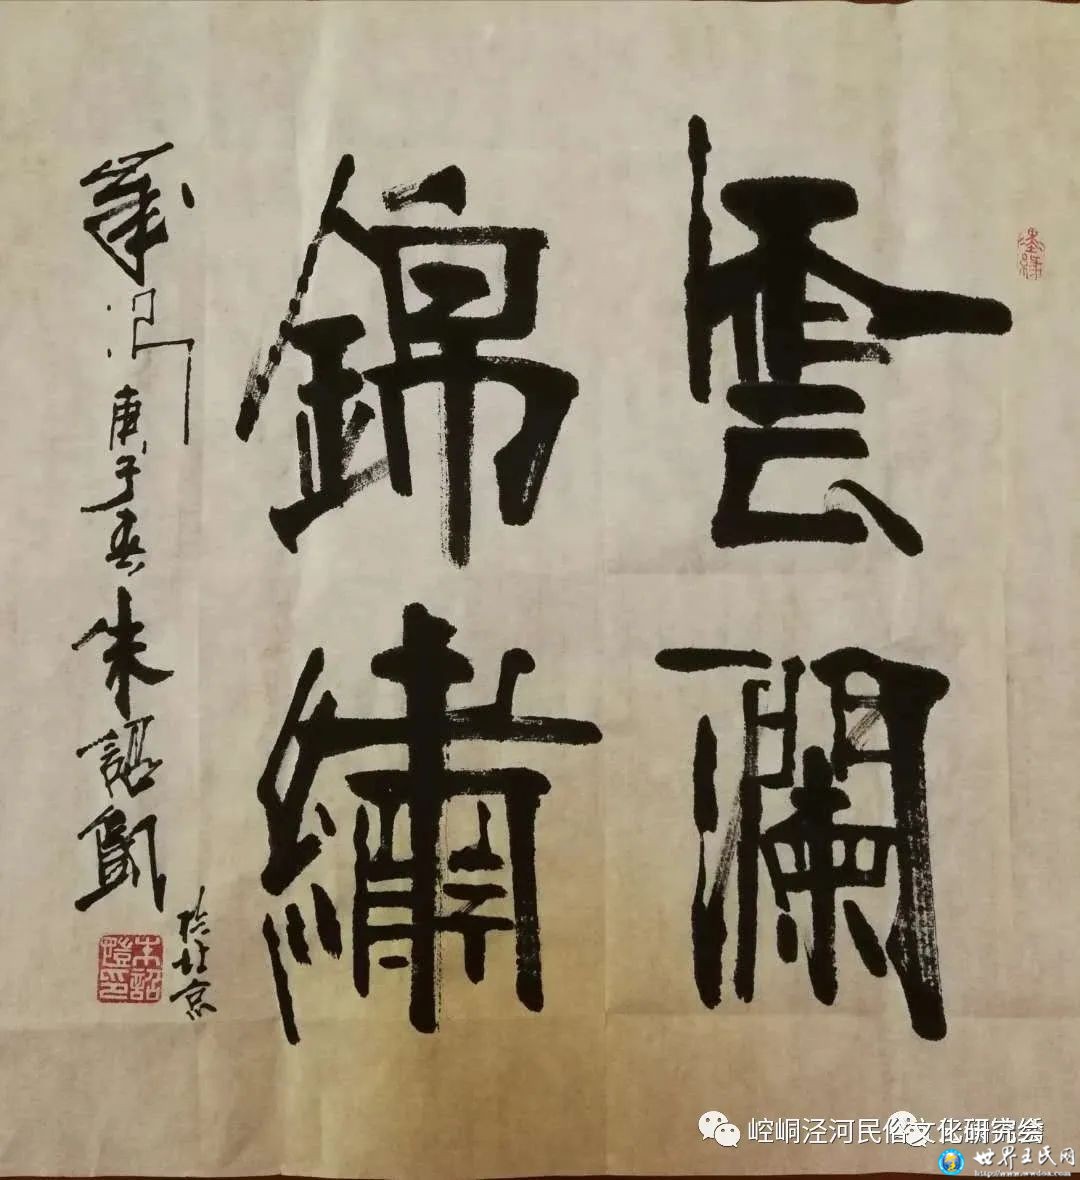 雲瀾
錦繡
庚子春朱詔凱
於北京
墨緣
崆峒泾河民俗文化研究会
世界王氏网